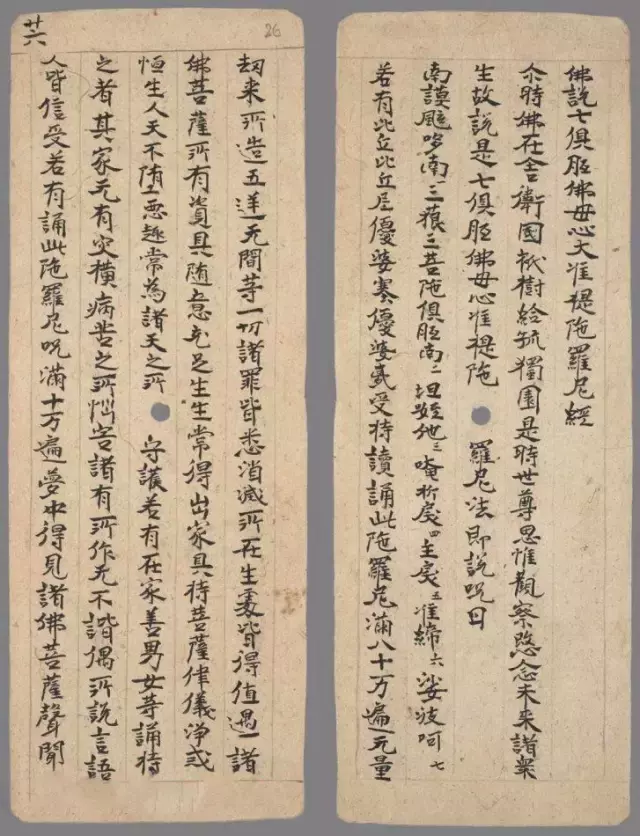 佛説七俱胝佛母心大准提陁羅尼經
尒時佛在舎衛國祇樹給孤獨園是時世尊思惟觀察愍念未来諸衆
生故説是七俱胝佛母心准提陁羅尼法即説呪曰
南謨颯哆南一三藐三菩陁俱胝南二怛姪他三唵折戾四主戾五准締六娑波呵七
若有比丘比丘尼優婆塞優婆夷受持讀誦此陁羅尼滿八十万遍无量
廿六
26
劫来所造五逆无間等一切諸罪皆悉消滅所在生處皆得值遇諸
佛菩薩所有資具随意充足生生常得出家具持菩薩律儀淨戒
恒生人天不墮惡趣常為諸天之所守護若有在家善男女等誦持
之者其家无有灾橫病苦之所惱害諸有所作无不諧偶所説言語
人皆信受若有誦此陁羅尼呪滿十万遍夢中得見諸佛菩薩聲聞